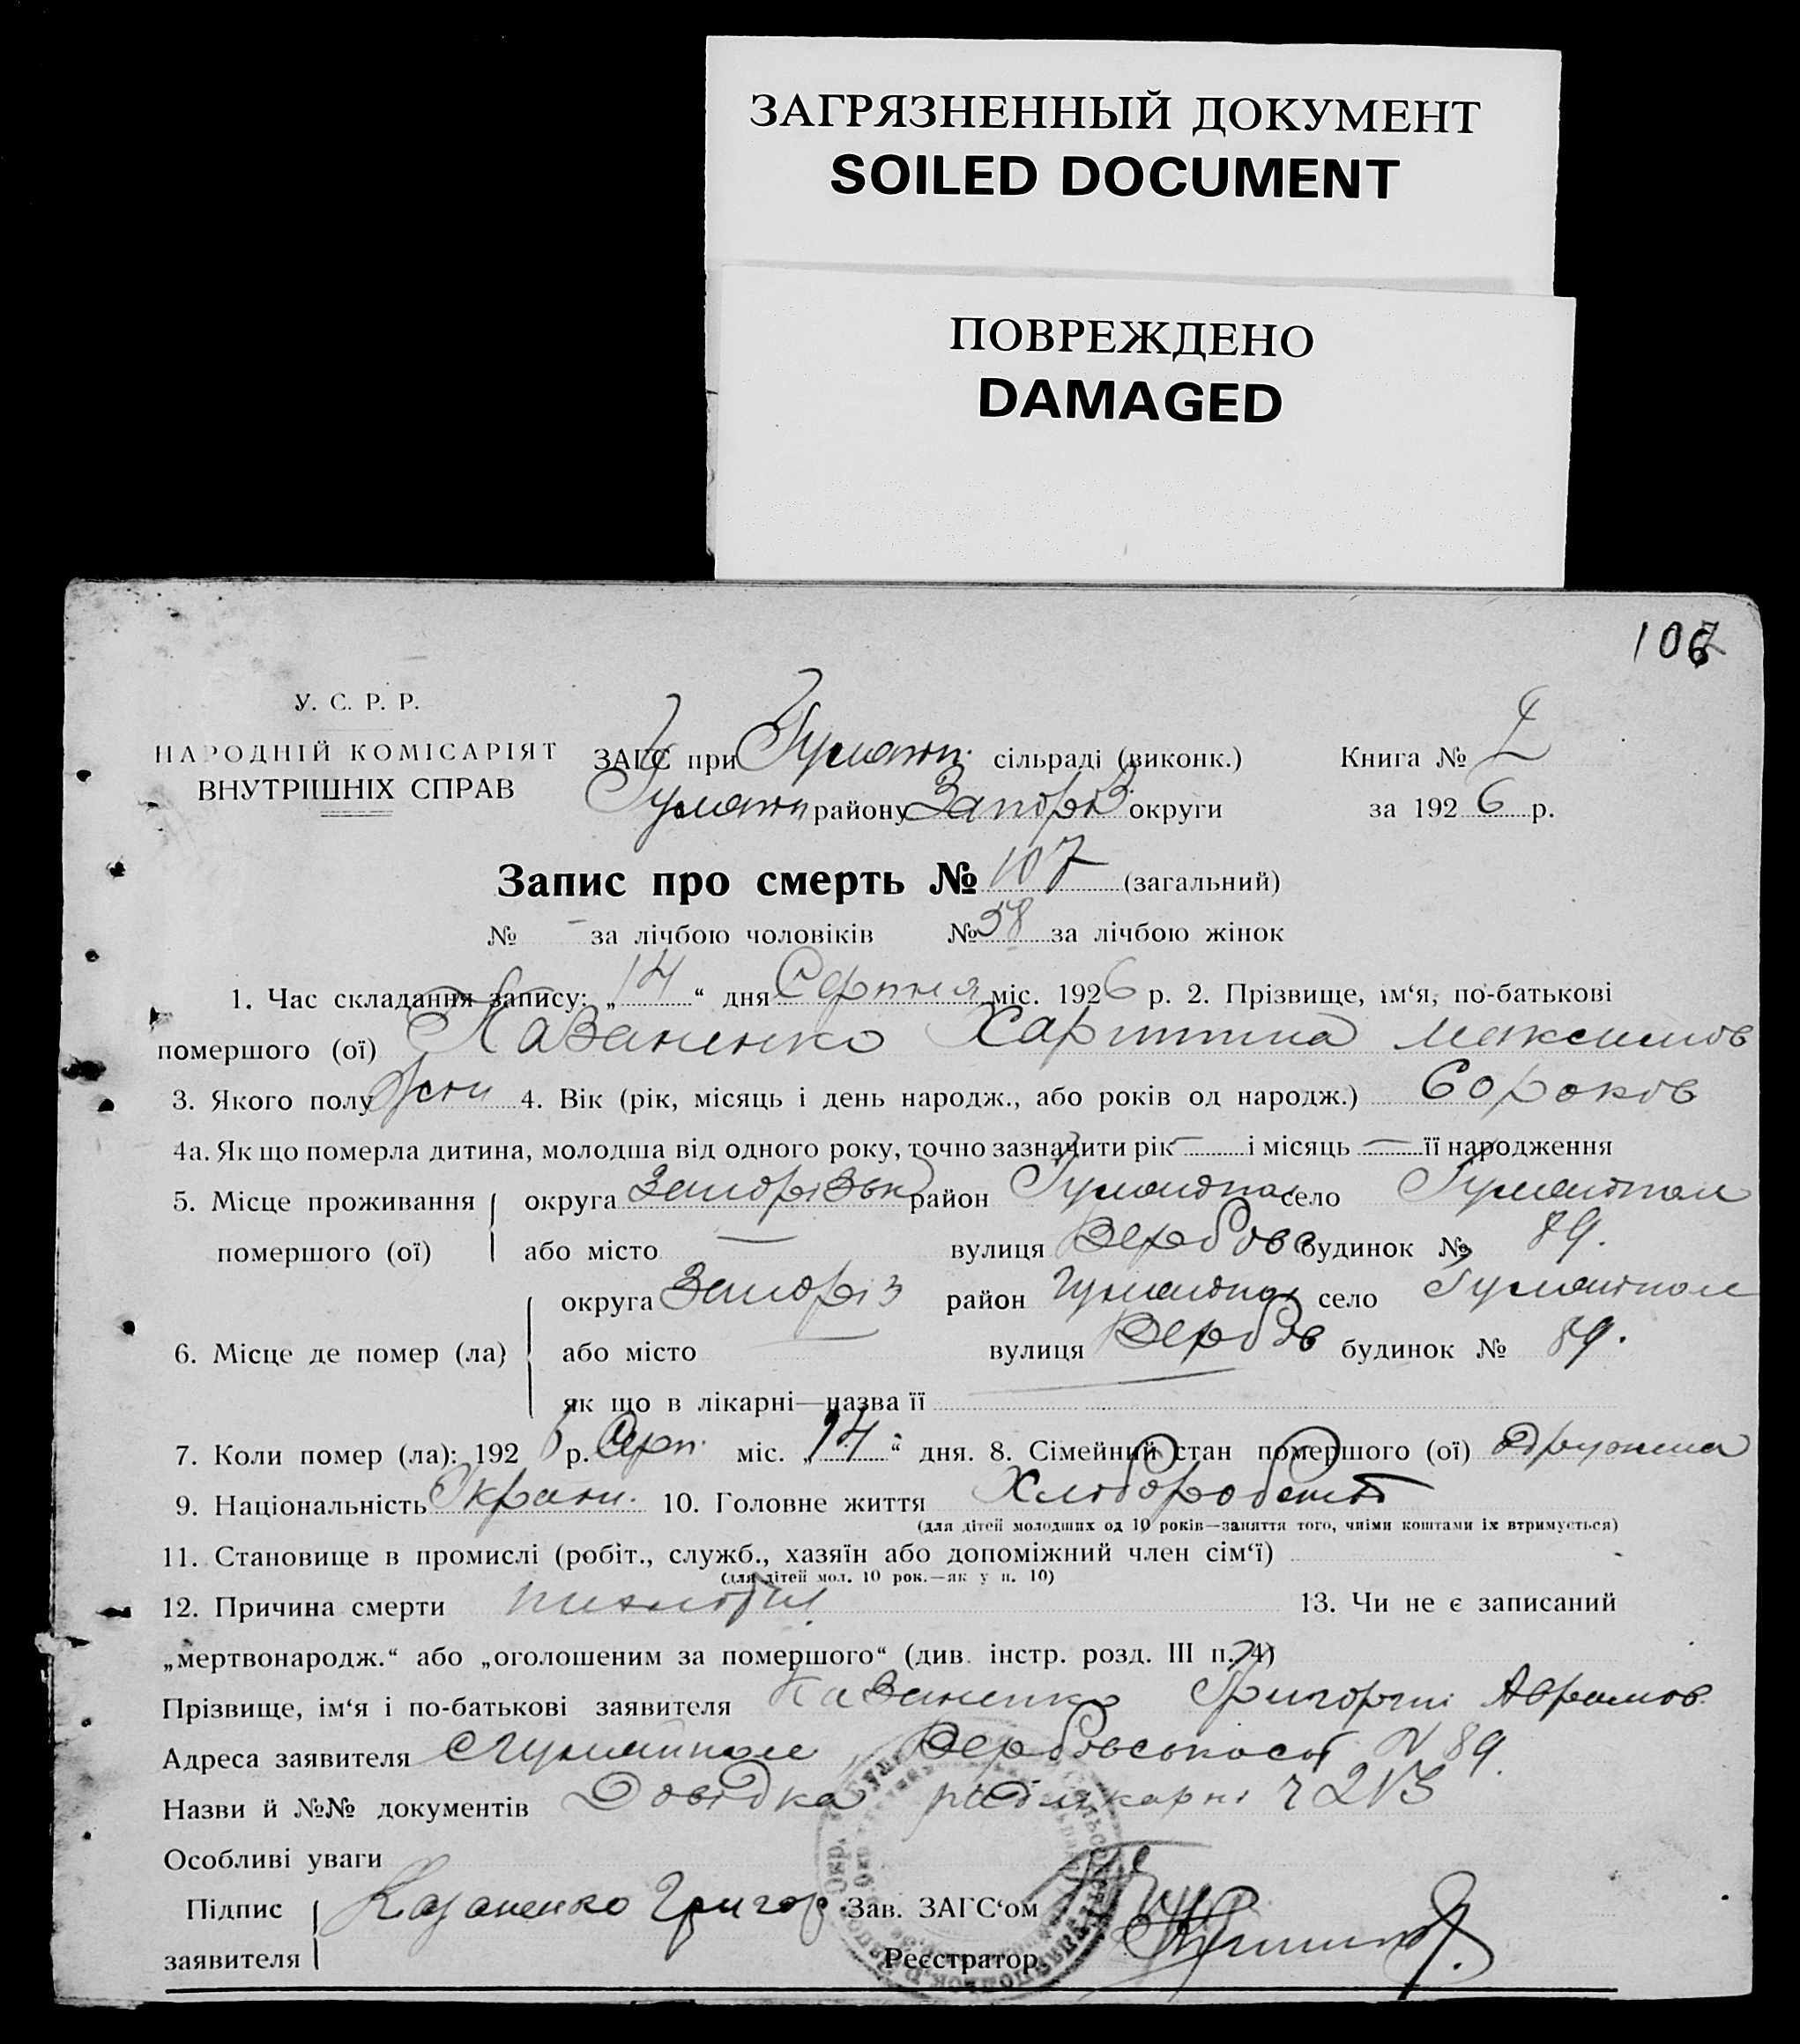 ЗАГРЯЗНЕННЫЙ ДОКУМЕНТ
SOILED DOCUMENT
ПОВРЕЖДЕНО
DAMAGED
У. С. Р. Р.
НАРОДНІЙ КОМІСАРІЯТ
ВНУТРІШНІХ СПРАВ
ЗАГС при Гуляйп. сільраді (виконк.) Книга №
Гуляйп району Запоріз округи за 1926 р.
Запис про смерть № 107 (загальний)
№ - за лічбою чоловіків № 58 за лічбою жінок
1. Час складання запису: „14“ дня Серпня міс. 1926 р. 2. Прізвище, ім‘я, по-батькові
помершого (ої) Казаненко Харитина Максимов
3. Якого полу жін 4. Вік (рік, місяць і день народж., або років од народж.) 60 роков
4а. Як що померла дитина, молодша від одного року, точно зазначити рік — і місяць — її народження
5. Місце проживання округа Запорізьк район Гуляйпол село Гуляйполе
помершого (ої) або місто — вулиця Вербова будинок № 89.
округа Запоріз район Гуляйпол село Гуляйполе
6. Місце де помер (ла) або місто — вулиця Вербов будинок № 89.
як що в лікарні—назва її —
7. Коли помер (ла): 1926 р. Серп. міс. „14“ дня. 8. Сімейний стан помершого (ої) одружена
9. Національність Україн. 10. Головне життя Хлібороб
(для дітей молодших од 10 років—заняття того, чиїми коштами їх втримується)
11. Становище в промислі (робіт., служб., хазяїн або допоміжний член сім‘ї)
(для дітей мол. 10 рок.—як у п. 10)
12. Причина смерти 13. Чи не є записаний
„мертвонародж.“ або „оголошеним за помершого“ (див. інстр. розд. III п. 4)
Прізвище, ім‘я і по-батькові заявителя Казаненко Григорій Аврамов.
Адреса заявителя Гуляйполе, Вербовська № 89.
Назви й №№ документів Довідка райлікарні
Особливі уваги
Підпис Казаненко Григор Зав. ЗАГС‘ом
заявителя Реєстратор